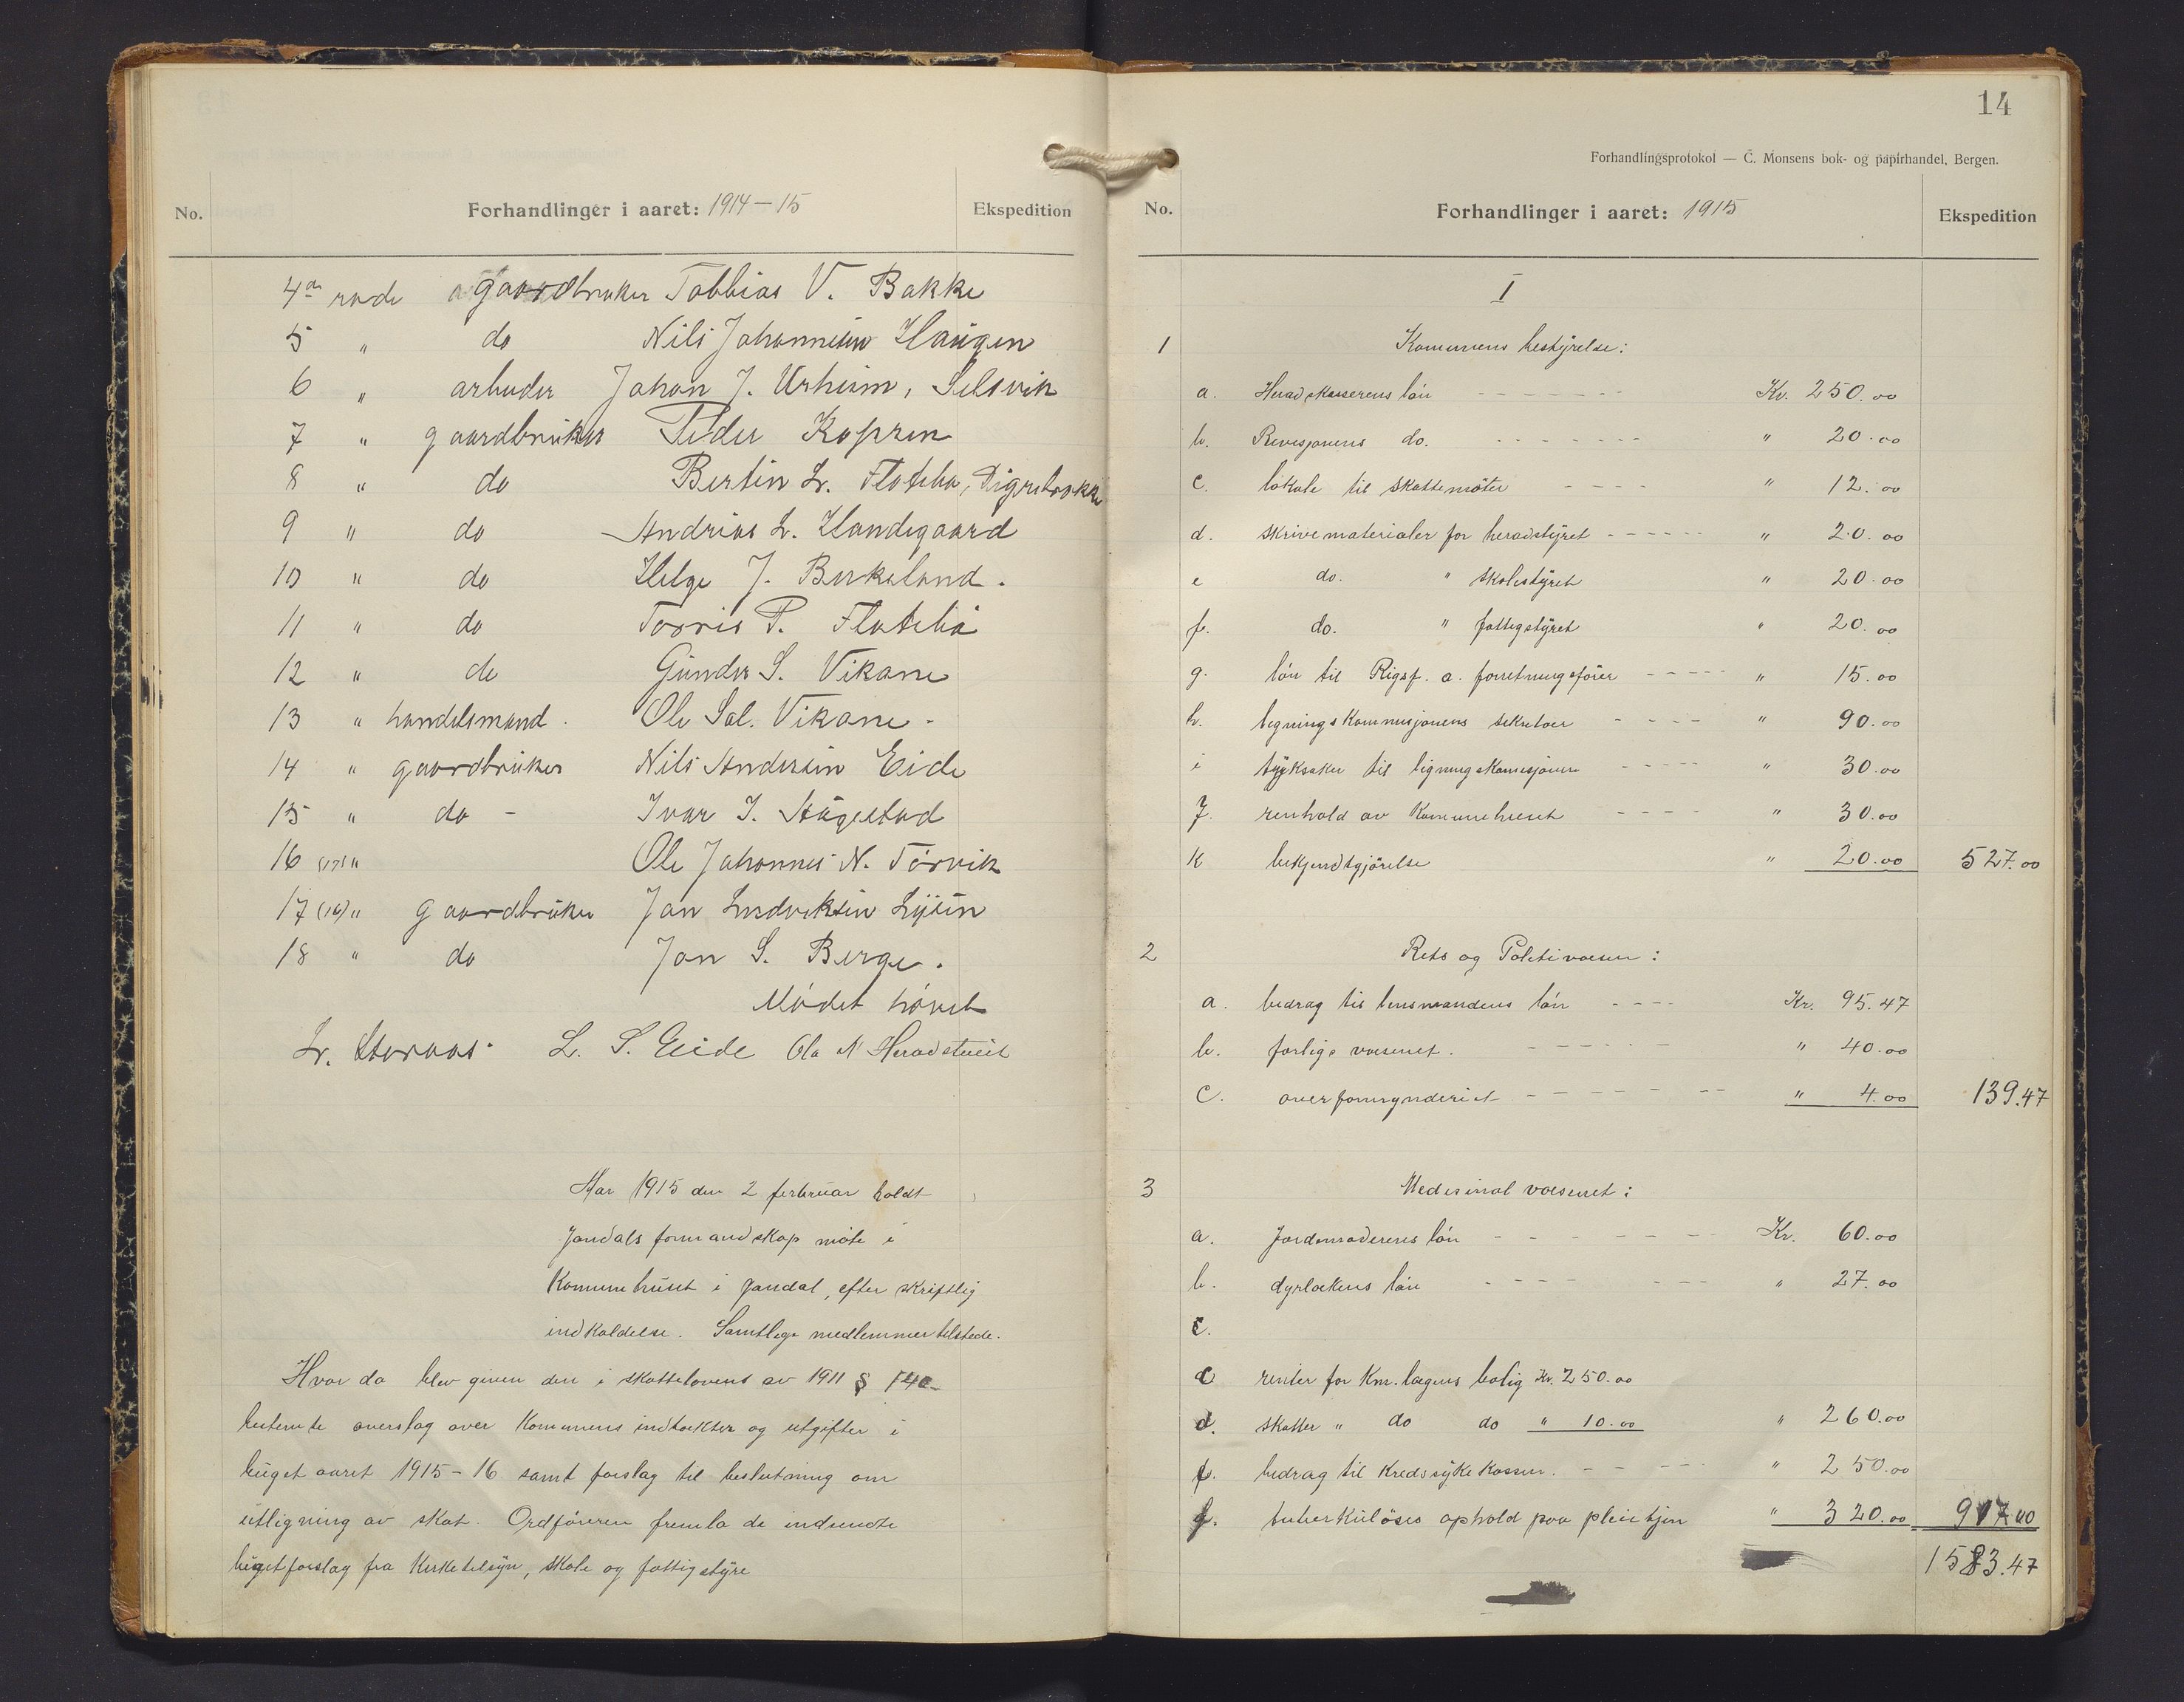 No. Forhandlinger i aaret: 1914-15 Ekspedition
4de rode gaardbruker Tobbias V. Bakke
5 " do Nils Johannesen Haugen
6 " arbeider Johan J. Urheim, Selsvik
7 " gaardbruker Peder Kopren
8 " do Bertin Lr. Flatebø, Digrebrekke
9 " do Andreas L. Handegaard
10 " do Helge J. Birkeland.
11 " do Torris P. Flatebø
12 " do Gunder S. Vikane
13 " handelsmand. Ole Sal. Vikane.
14 " gaardbruker Nils Andersen Eide
15 " do - Ivar I. Aagestad
16 (17) " Ole Johannes N. Tørvik
17 (16) " gaardbruker Jan Ludviksen Lysen
18 " do Jon S. Berge.
Mødet hævet
Lr. Staraas. L. S. Eide Ola N Heradstveit
Aar 1915 den 2 ferbruar holdt
Jondals formandskap møte i
Kommunehuset i Jondal, efter skriftlig
indkaldelse. Samtlige medlemmer tilstede.
Hvor da blev given den i skattelovens av 1911 §
bestemte overslag over Kommunens indtækter og utgifter i
buget aaret 1915-16 samt forslag til beslutning om
utligning av skat. Ordføreren fremla de indsendte
bugetforslag fra Kirketilsyn, skole og fattigstyre
14
Forhandlingsprotokol — C. Monsens bok- og papirhandel, Bergen.
No. Forhandlinger i aaret: 1915 Ekspedition
I
1 Kommunens bestyrelse:
a. Heradskasserens løn Kr. 250.00
b. Revisjonens do. " 20.00
c. lokale til skattemøter " 12.00
d. skrivematerialer for heradstyret " 20.00
e do. " skolestyret " 20.00
f. do. " fattigstyret " 20.00
g. løn til Rigsf. a. forretningsfører " 15.00
h. ligningskommisjonens sekretær " 90.00
i trykksaker til ligningskomisjonen " 30.00
j. renhold av Kommunehuset " 30.00
k bekjendtgjørelse " 20.00 527.00
2 Rets og Politivæsen:
a. bedrag til lensmandens løn Kr. 95.47
b. forligsvæsenet. " 40.00
c. overformynderiet " 4.00 139.47
3 Medisinal væsenet:
a. Jordmoderens løn Kr. 60.00
b. dyrlækens løn " 27.00
c.
c renter for Km. lægens bolig Kr. 250.00
d. skatter " do do " 10.00 " 260.00
f. bedrag til Kredssykekassen. " 250.00
f. tuberkuløses ophold paa pleiehjem " 320.00 917.00
1583.47